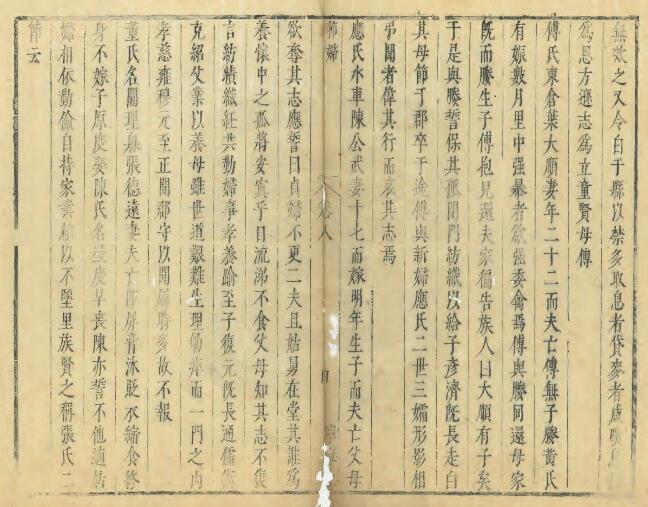 無敢之又令白于縣以禁多取息者貸麥者咸
爲思方遜志爲立童賢母傳
傅氏東倉葉大順妻年二十二而夫亡傅無子媵黃氏
有娠數月里中强暴者欲强委禽焉傅與媵同還母家
旣而媵生子傅抱見還夫家徧告族人曰大順有子矣
于是與媵誓保其孤閉門紡織以給子彥濟旣長走白
其母節于郡卒于途傅與新婦應氏二世三孀形影相
弔聞者偉其行而哀其志焉
應氏水車陳公武妻十七而嫁明年生子而夫亡父母
節婦
卷八
欲奪其志應誓曰貞婦不更二夫且姑舅在堂其誰爲
養懷中之孤將安寘乎日流涕不食父母知其志不復
言紡績織紝共勤婦事孝養踰至子復元旣長通儒
克紹父業以養母雖世道艱難生理彫瘁而一門之內
孝慈雍穆元至正間郡守以聞屬時多故不報
董氏名閏理臯張德遠妻夫亡節屏膏沐貶衣縮食終
身不嫁子原慶娶陳氏名瑩慶早喪陳亦誓不他適姑
婦相依勤儉自持家業賴以不墜里族賢之稱張氏二
節云